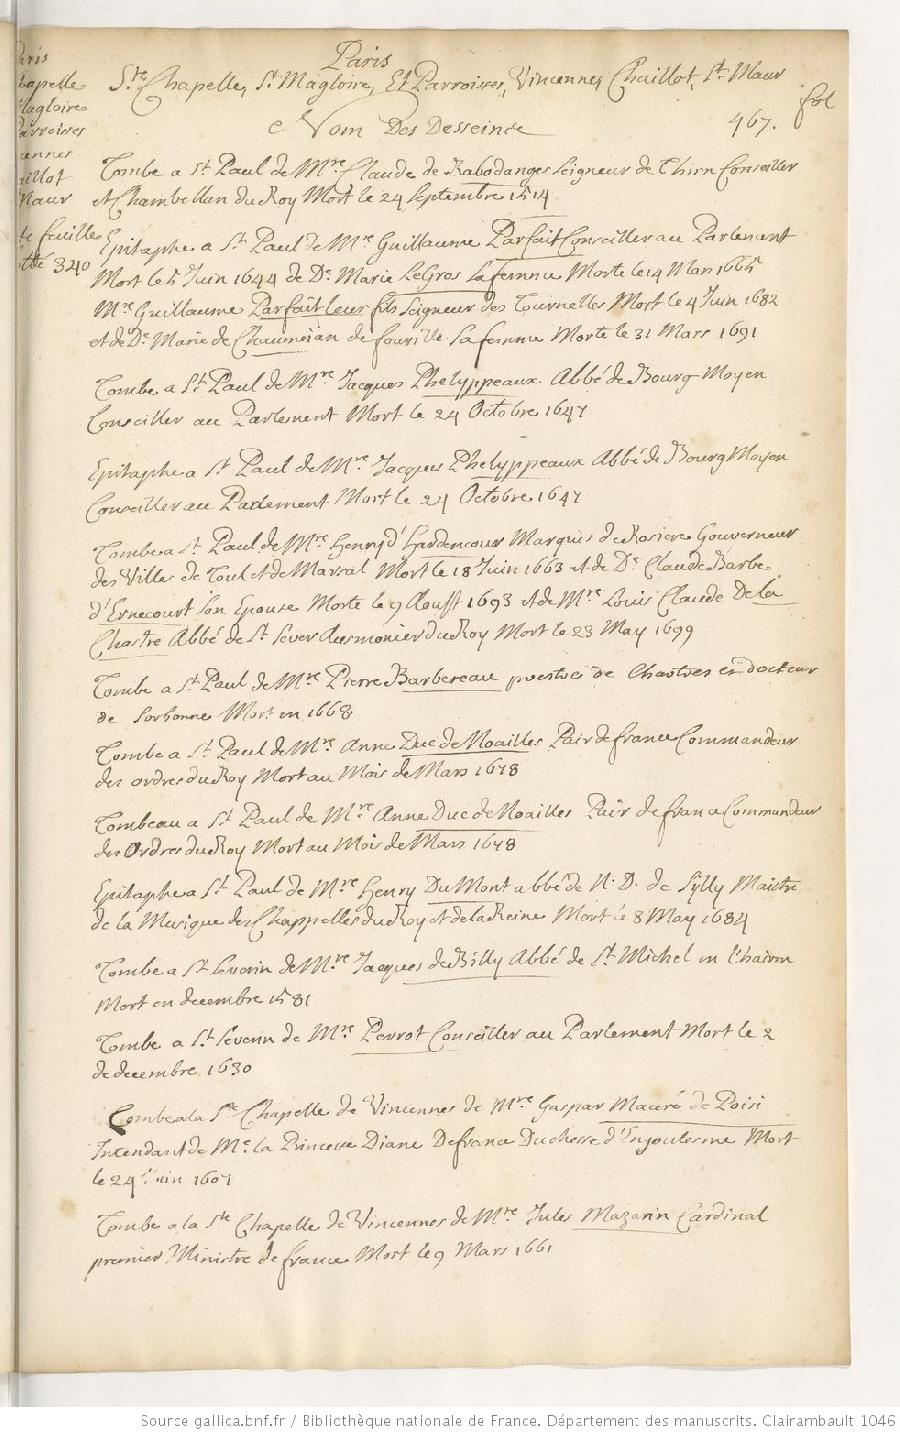 Paris
Ste Chapelle, St Magloire, Et Parroisses, Vincennes, Chaillot, St Maur
fol
467.
Nom Des Desseinc
Chapelle
Magloire
Parroisses
Maur
feuille
340
Tombe a St Paul de Mre Claude de Rabodanges Seigneur de Thirn Conseiller
et Chambellan du Roy Mort le 24 Septembre 1514
Epitaphe a St Paul de Mre Guillaume Parfait Conseiller au Parlement
Mort le 5 Juin 1644 de De Marie LeGros sa femme Morte le 14 Mars 1665
Mre Guillaume Parfait leur fils Seigneur des Tournelles Mort le 4 Juin 1682
et de De Marie de Chaumejan de fourille sa femme Morte le 31 Mars 1691
Tombe a St Paul de Mre Jacques Phelyppeaux Abbé de Bourg Moyen
Conseiller au Parlement Mort le 24 Octobre 1647
Epitaphe a St Paul de Mre Jacques Phelyppeaux Abbé de Bourg Moyen
Conseiller au Parlement Mort le 24 Octobre 1647
Tombe a St Paul de Mre Henry d'Hardencour Marquis de Rosiere Gouverneur
des Villes de Toul et de Marsal Mort le 18 Juin 1663 et de De Claude Barbe
d'Ernecourt Son Epouse Morte le 9 Aoust 1693 et de Mre Louis Claude De la
Chastre Abbé de St Sever Ausmonier du Roy Mort le 23 May 1699
Tombe a St Paul de Mre Pierre Barbereau prestre de Chartres et docteur
de Sorbonne Mort en 1668
Tombe a St Paul de Mre Anne Duc de Noailles Pair de france Commandeur
des ordres du Roy Mort au Mois de Mars 1678
Tombeau a St Paul de Mre Anne Duc de Noailles Pair de france Commandeur
des Ordres du Roy Mort au Mois de Mars 1678
Epitaphe a St Paul de Mre Henry Du Mont abbé de N. D. de Sylly Maistre
de la Musique des Chappelles du Roy et de la Reine Mort le 8 May 1684
Tombe a St Severin de Mre Jacques de Billy Abbé de St Michel en l'hairm
Mort en decembre 1581
Tombe a St Severin de Mre Perrot Conseiller au Parlement Mort le 2
de decembre 1630
Tombe a la Ste Chapelle de Vincennes de Mre Gaspar Mauré de Poisi
Intendant de Me la Princesse Diane De france Duchesse d'Engoulesme Mort
le 24 Juin 1607
Tombe a la Ste Chapelle de Vincennes de Mre Jules Mazarin Cardinal
premier Ministre de france Mort le 9 Mars 1661
Source gallica.bnf.fr / Bibliothèque nationale de France. Département des manuscrits. Clairambault 1046